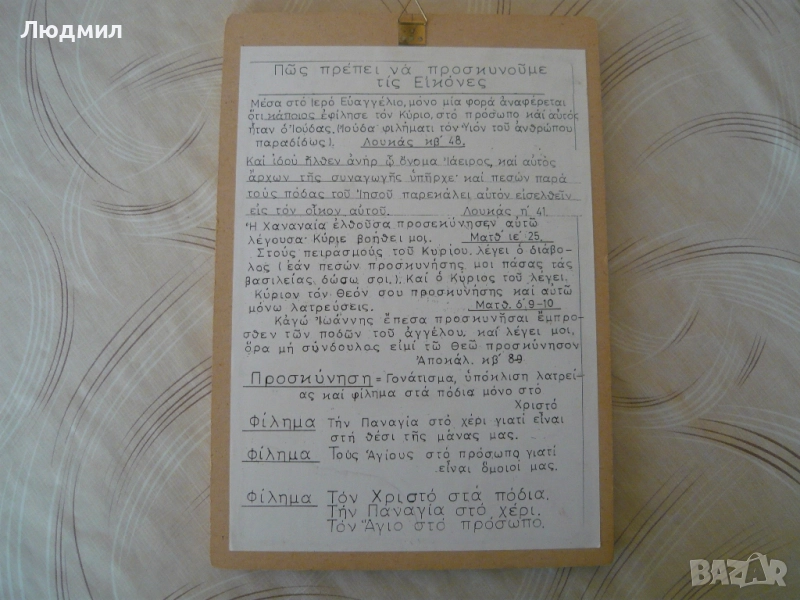 Людмил
Πῶς πρέπει νά προσκυνοῦμε
τίς Εἰκόνες
Μέσα στό Ιερό Εὐαγγέλιο, μόνο μία φορά ἀναφέρεται
ὅτι κάποιος ἐφίλησε τόν Κύριο, στό πρόσωπο καί αὐτός
ἦταν ὁ Ἰούδας, (Ἰούδα φιλήματι τόν Υἱόν τοῦ ἀνθρώπου
παραδίδως). Λουκάς κβ' 48.
Καί ἰδού ἦλθεν ἀνήρ ᾧ ὄνομα Ἰάειρος, καί αὐτός
ἄρχων τῆς συναγωγῆς ὑπῆρχε· καί πεσών παρά
τούς πόδας τοῦ Ἰησοῦ παρεκάλει αὐτόν εἰσελθεῖν
εἰς τόν οἶκον αὐτοῦ. Λουκάς η' 41.
Ἡ Χαναναία ἐλθοῦσα προσεκύνησεν αὐτῶ
λέγουσα· Κύριε βοήθει μοι. Ματθ' ιε' 25.
Στούς πειρασμούς τοῦ Κυρίου, λέγει ὁ διάβο-
λος (ἐάν πεσών προσκυνήσης μοι πάσας τάς
βασιλείας, δώσω σοι,). Καί ὁ Κύριος τοῦ λέγει.
Κύριον τόν Θεόν σου προσκυνήσης καί αὐτῶ
μόνω λατρεύσεις. Ματθ. δ', 9-10
Κἀγώ Ἰωάννης ἔπεσα προσκυνῆσαι ἔμπρο-
σθεν τῶν ποδῶν τοῦ ἀγγέλου, καί λέγει μοι,
ὅρα μή σύνδουλος εἰμί τῶ Θεῶ προσκύνησον
Ἀποκάλ. κβ' 89
Προσκύνηση = Γονάτισμα, ὑπόκλιση λατρεί-
ας καί φίλημα στά πόδια μόνο στό
Χριστό
Φίλημα Τήν Παναγία στό χέρι γιατί εἶναι
στή θέσι τῆς μάνας μας.
Φίλημα Τούς Ἁγίους στό πρόσωπο γιατί
εἶναι ὅμοιοί μας.
Φίλημα Τόν Χριστό στά πόδια.
Τήν Παναγία στό χέρι.
Τόν Ἅγιο στό πρόσωπο.
BAZAR